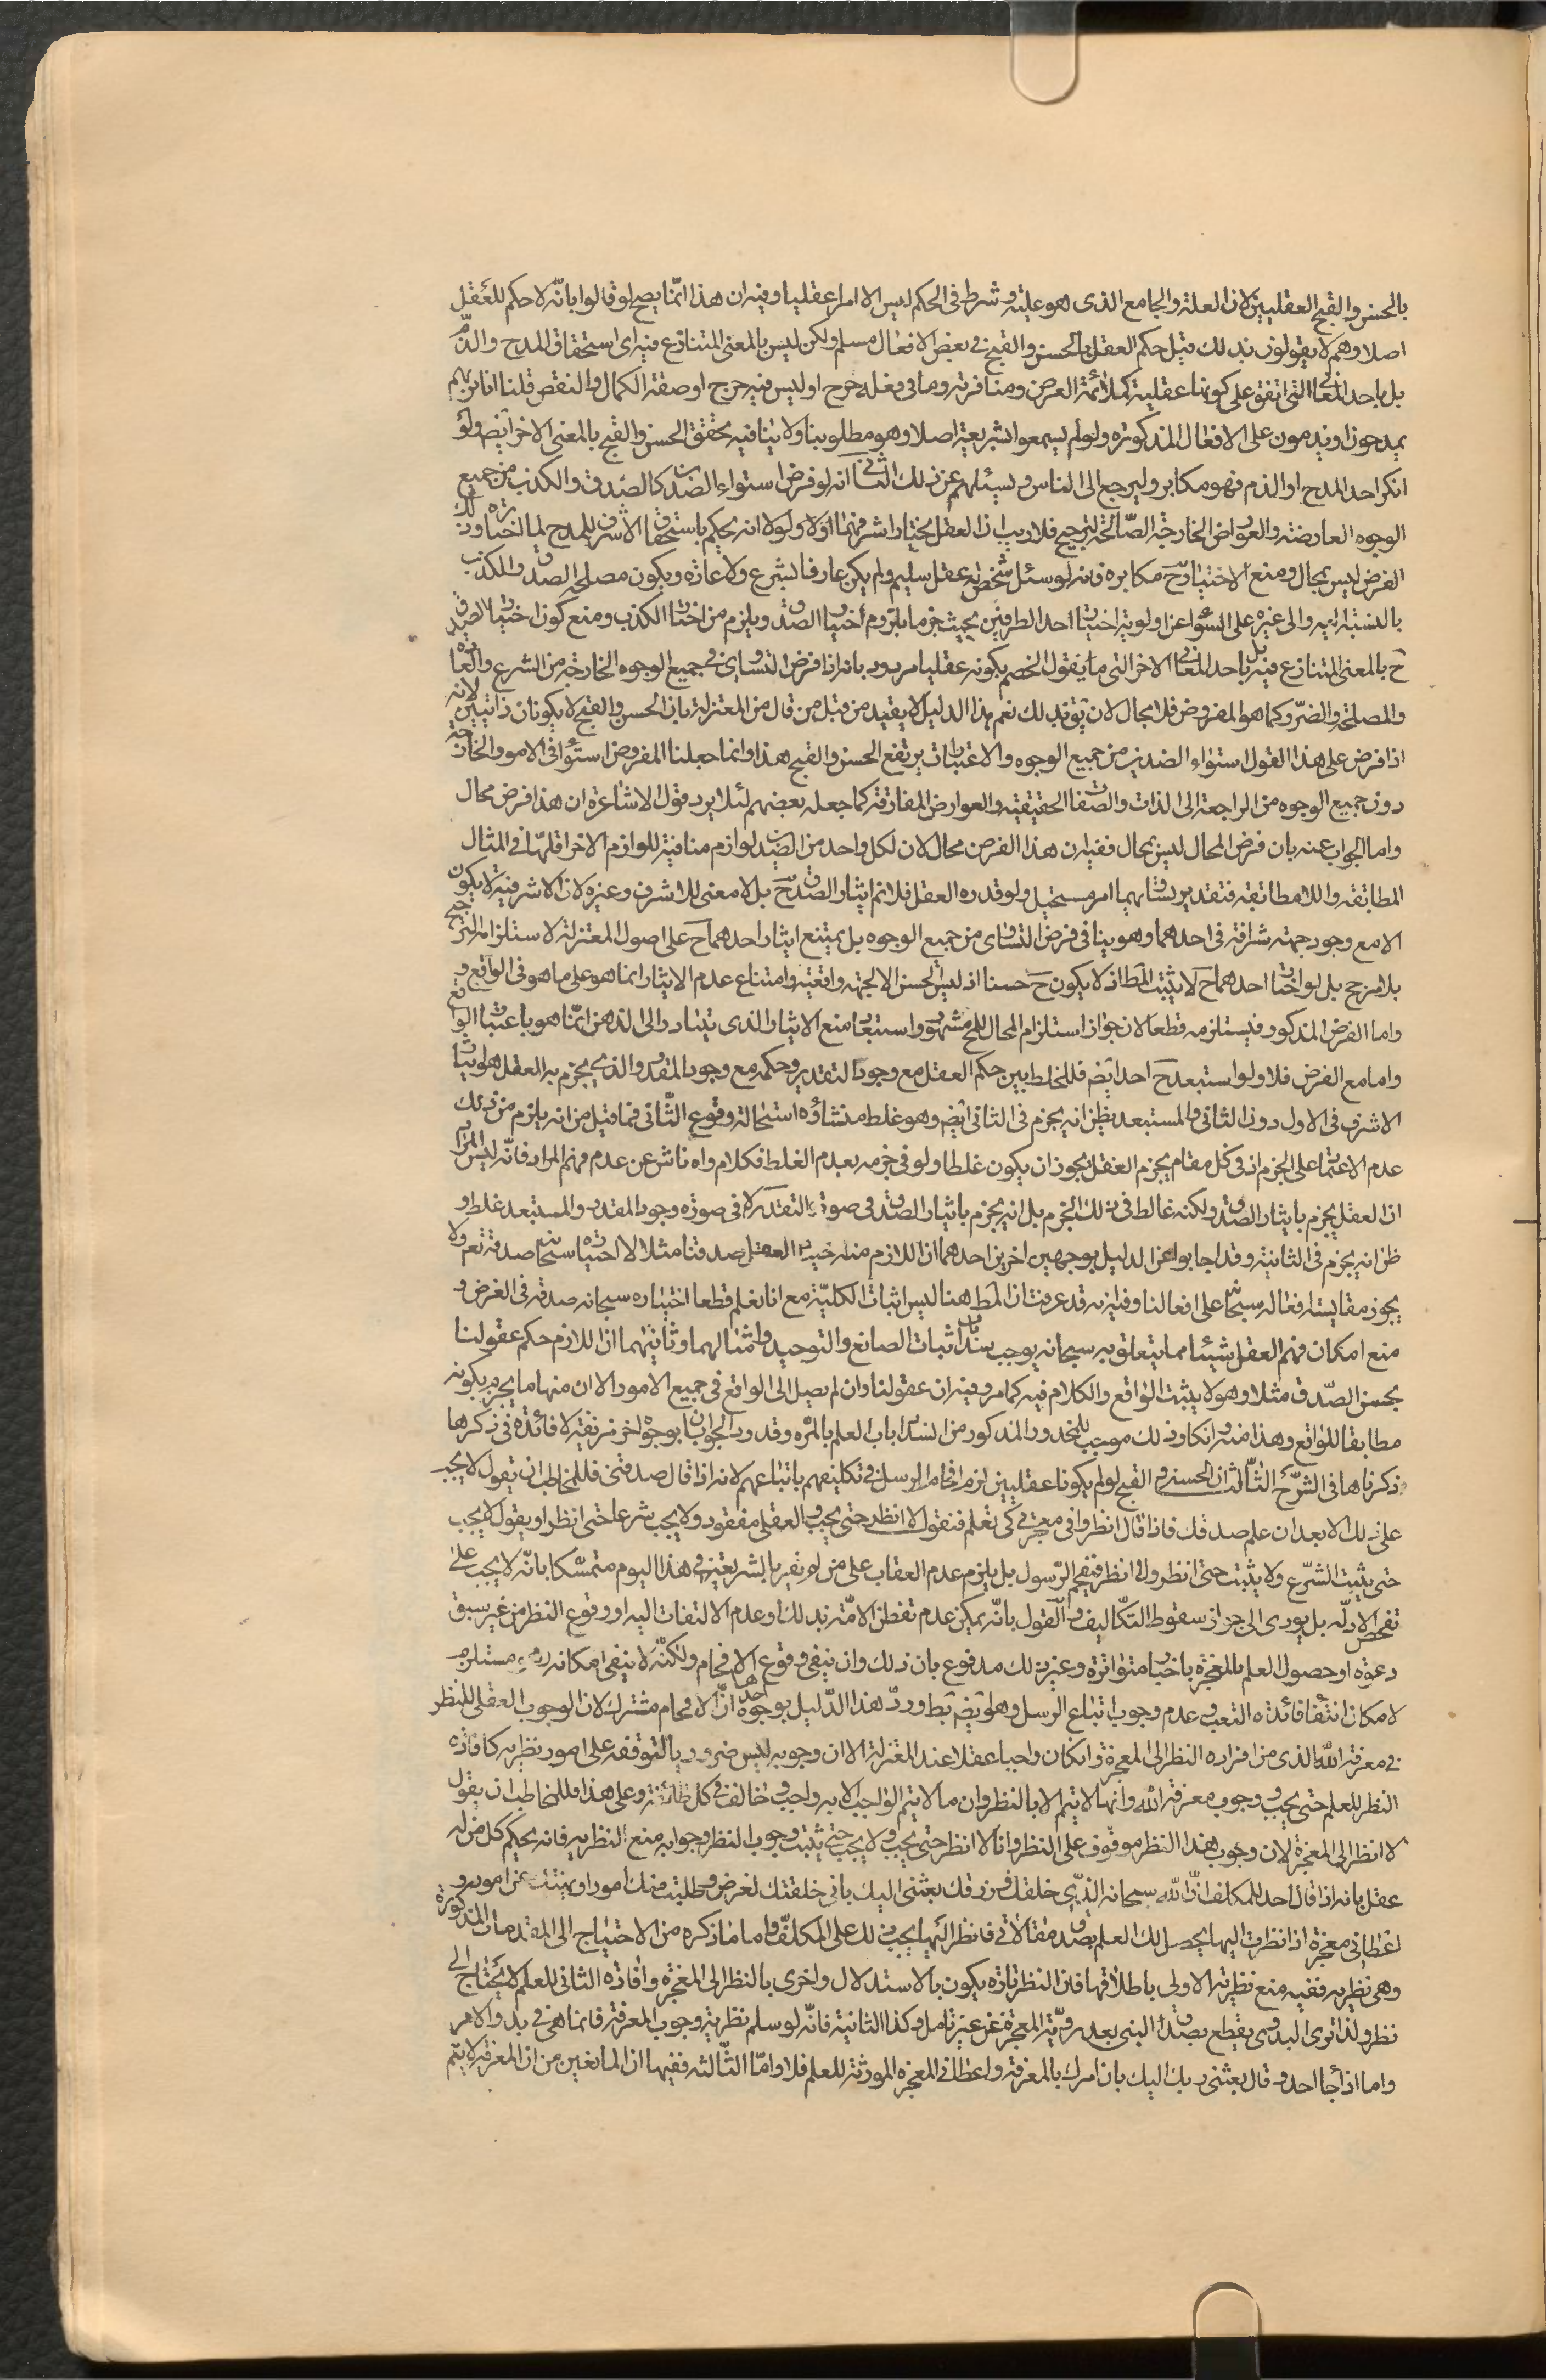 بالحسن والقبح العقليين لان العلة والجامع الذى هو علية وشرط فى الحكم ليس الا امرا عقليا وفيه ان هذا انّما يصح لو قالوا بانّه لا حكم للعَقل
اصلا وهم لا يقولون بذلك قيل حكم العقل بالحسن والقبح فى بعض الافعال مسلم ولكن ليس بالمعنى المتنازع فيه اى استحقاق المدح والذّم
بل باحد المعانى التى اتفق على كونها عقلية كملائمة الغرض ومنافرته وما فى فعله حرج او ليس فيه حرج او صفة الكمال والنقص قلنا انا نريهم
يمدحون او يذمون على الافعال المذكورة ولو لم يسمعوا بشريعة اصلا وهو مطلوبنا ولا ينافيه تحقق الحسن والقبح بالمعنى الاخر ايض ولو
انكر احد المدح او الذم فهو مكابر وليرجع الى الناس ويسئلهم عن ذلك الثانى انه لو فرض استواء الضدين كالصّدق والكذب من جميع
الوجوه العارضة والعوارض الخارجة الصّالحة لترجيح فلا ريب ان العقل يختار اشرفهما اوّلا ولولا انه يحكم باستحقاق الاشرف للمدح لما اختاره وذلك
الفرض ليس بمحال ومنع الاختيار حَ مكابرة فانه لو سئل شخص له عقل سليم ولم يكن عارفا بشرع ولا عادة ويكون مصلحة الصدق والكذب
بالنسبة اليه والى غيره على السَّواء عن اولوية اختيار احد الطرفين بحيث جزما يلزوم اختيار الصدق ويلزم من اختار الكذب ومنع كون اختيار الصدق
حَ بالمعنى المتنازع فيه بل باحد المعانى الاخر التى ما يقول الخصم بكونه عقليا مردود بانه اذا فرض التساوى فى جميع الوجوه الخارجة من الشرع والعادة
والمصلحة والضرر كما هو المفروض فلا مجال لان يتوقف بذلك نعم هذا الدليل لا يفيد من قبل من قال من المعتزلة بان الحسن والقبح لا يكونان ذاتيين لانه
اذا فرض على هذا القول استواء الضدين من جميع الوجوه والاعتبارات يرتفع الحسن والقبح هذا وانما جعلنا المفروض استواء فى الامور الخارجة
دون جميع الوجوه من الراجعة الى الذات والصفات الحقيقية والعوارض المفارقة كما جعله بعضهم لئلا يرد قول الاشاعرة ان هذا فرض محال
واما الجواب عنه بان فرض المحال ليس بمحال ففيه ان هذا الفرض محال لان لكل واحد من الضدين لوازم منافية للوازم الاخر اقلها فى المثال
المطابقة واللا مطابقة فتقدير تساويهما امر مستحيل ولو قدره العقل فلا نم ايثار الصدق حَ بل لا معنى للاشرف وغيره لان الاشرفية لا يكون
الا مع وجود جهة شرافة فى احدهما وهو ينافى فرض التساوى من جميع الوجوه بل يمتنع ايثار احدهما حَ على اصول المعتزلة لاستلزامه الترجيح
بلا مرجح بل لو اختار احدهما حَ لا يثبت المط اذ لا يكون حَ حسنا اذ ليس الحسن الا لجهة واقعية وامتناع عدم الايثار انما هو على ما هو فى الواقع و
واما الفرض المذكور فيستلزمه قطعا لان جواز استلزام المحال للمح مشهور واستبعاد منع الايثار الذى يتبادر الى الذهن انّما هو باعتبار الواقع
واما مع الفرض فلا ولو استبعد حَ احد ايض فللخلط بين حكم العقل مع وجود التقدير وحكمه مع وجود المقدر والذى يجزم به العقل هو ايثار
الاشرف فى الاول دون الثانى والمستبعد يظن انه يجزم فى الثانى ايض وهو غلط منشاؤه استحالة وقوع الثّانى فما قيل من انه يلزم من ذلك
عدم الاعتماد على الجزم اذ فى كل مقام يجزم العقل يجوز ان يكون غلطا ولو فى جزمه بعدم الغلط فكلام واه ناش عن عدم فهم المراد فانّه ليس المراد
ان العقل يجزم بايثار الصدق ولكنه غالط فى ذلك الجزم بل انه يجزم بايثار الصدق فى صورة التقدير لا فى صورة وجود المقدر والمستبعد غلط و
ظن انه يجزم فى الثانية وقد اجابوا عن الدليل بوجهين اخرين احدهما ان اللازم منه العقل صدقنا مثلا لا اختياره سبحانه صدقه نعم ولا
يجوز مقايسة افعاله سبحانه على افعالنا وفيه انه قد عرفت ان المط هنا ليس اثبات الكليّة مع انا نعلم قطعا اختياره سبحانه صدقه فى الغرض و
منع امكان فهم العقل شيئا مما يتعلق به سبحانه يوجب سد باب اثبات الصانع والتوحيد وامثالهما وثانيهما ان اللازم حكم عقولنا
بحسن الصّدق مثلا وهو لا يثبت الواقع والكلام فيه كما مر وفيه ان عقولنا وان لم يصل الى الواقع فى جميع الامور الا ان منها ما يجزم بكونه
مطابقا للواقع وهذا منه وانكار ذلك موجب للمحذور المذكور من انسداد باب العلم بالمرة وقد ورد الجوابان بوجوه اخر مزيفة لا فائدة فى ذكرها
ذكرناها فى الشّرح الثّالث ان الحسن والقبح لو لم يكونا عقليين لزم افحام الرسل فى تكليفهم باتباعهم لانه اذا قال صدقنى فللمخاطب ان يقول لا يجب
على ذلك الا بعد ان علم صدقك فاذا قال انظر وافى معجزتى كى تعلم فنقول لا انظر حتى يجب والعقلى مفقود ولا يجب شرعا حتى انظر او يقول لا يجب
حتى يثبت الشرع ولا يثبت حتى انظر ولا انظر فيفحم الرّسول بل يلزم عدم العقاب على من لم يقر بالشريعة فى هذا اليوم متمسّكا بانّه لا يجب علىّ
تفحص الادلّه بل يؤدى الى جواز سقوط التكّاليف والَقول بانّه يمكن عدم تفطن الامّة بذلك او عدم الالتفات اليه او وقوع النظر من غير سبق
دعوة او حصول العلم بالمعجزة باخبار متواترة وغير ذلك مدفوع بان ذلك وان ينفى وقوع الافحام ولكنّه لا ينفى امكانه وهو مستلزم
لامكان انتفاء فائدة البعث وعدم وجوب اتباع الرسل وهو ايض بط وردّ هذا الدّليل بوجوه احدها انّ الافحام مشترك لان الوجوب العقلى للنظر
فى معرفة الله الذى من افراده النظر الى المعجزة وان كان واجبا عقلا عند المعتزلة الا ان وجوبه ليس ضروريا لتوقفه على امور نظرية كافادة
النظر للعلم حتى يجب ووجوب معرفة الله وانها لا يتم الا بالنظر وان ما لا يتم الواجب الا به واجب وخالف فى كل طائفة وعلى هذا فللمخاطب ان يقول
لا انظر الى المعجزة لان وجوب هذا النظر موقوف على النظر وانا لا انظر حتى يجب ولا يجب حتى يثبت وجوب النظر وجوابه منع النظرية فانه يحكم كل من له
عقل بانه اذا قال احد للمكلف انّ الله سبحانه الذّى خلقك ورزقك بعثنى اليك بانى خلقتك لغرض وطلبت منك امورا ونهيتك عن امور و
اعطانى معجزة اذا نظرت اليها يحصل لك العلم بصدق مقالاتى فانظر اليَها يجب ذلك على المكلّف واما ما ذكره من الاحتياج الى المقدمات المذكورة
وهى نظرية ففيه منع نظرية الاولى باطلاقها فان النظر تارة يكون بالاستدلال واخرى بالنظر الى المعجزة وافادة الثانى للعلم لا يحتاج الى
نظر ولذا ترى البدوى يقطع بصدق النبى بعد رؤية المعجزة عن غير تامل وكذا الثانية فانّه لو سلم نظرية وجوب المعرفة فانما هى فى بدو الامر
واما اذا جاء احد وقال بعثنى ربك اليك بان امرك بالمعرفة واعطانى المعجزة المورثة للعلم فلا وامّا الثّالثه ففيها ان المانعين من ان المعرفة لا يتم